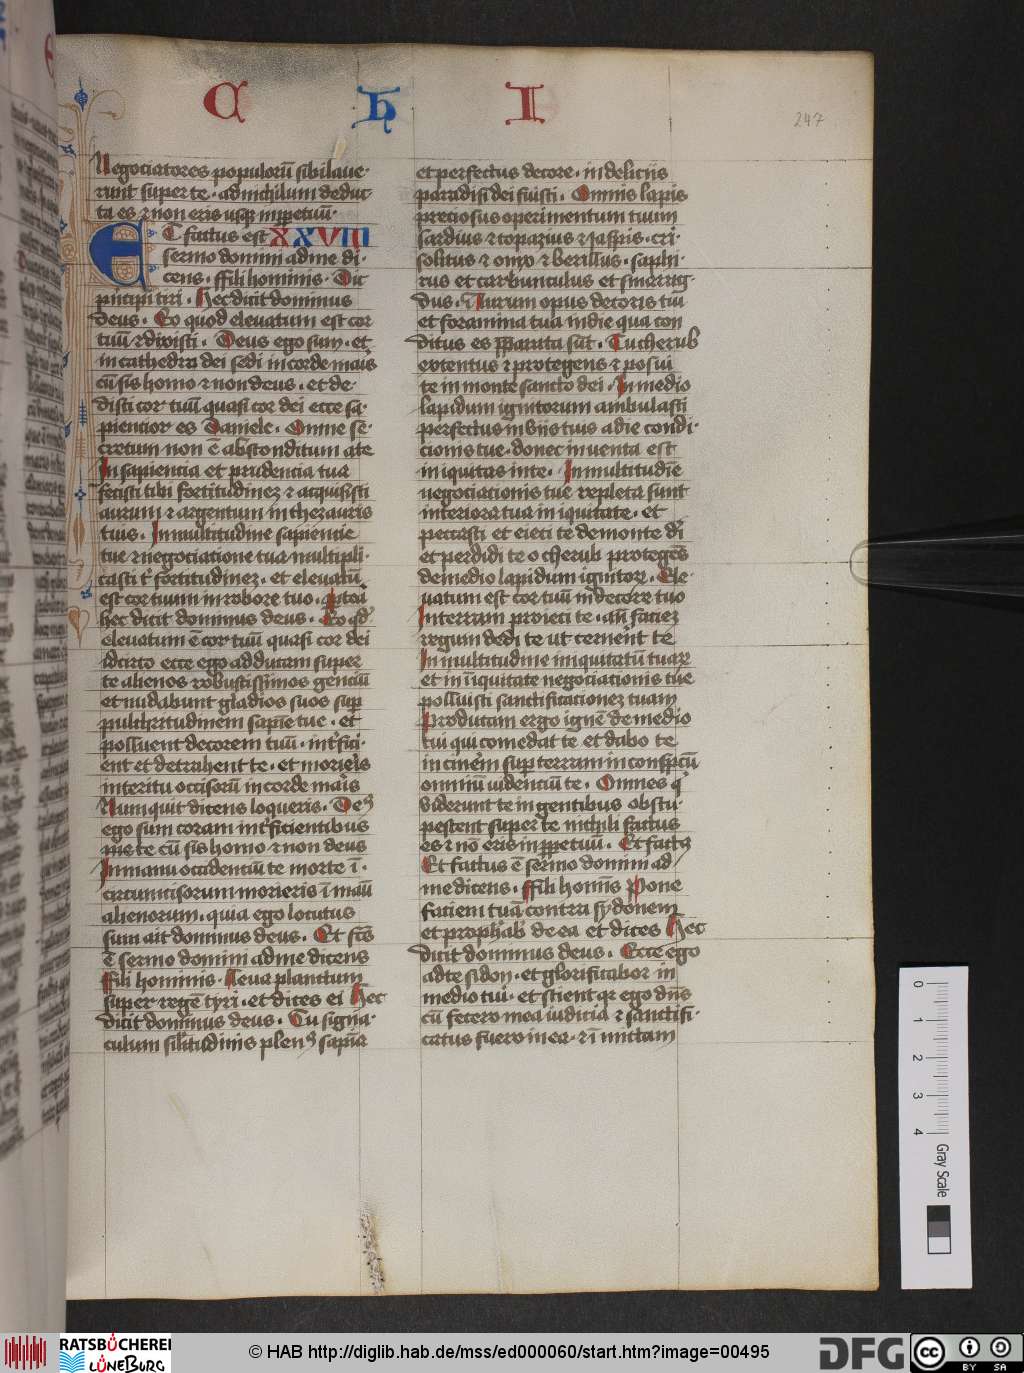 C h I
247
Negociatores populorū sibilaue-
runt super te · ad nichilum deduc-
ta es ⁊ non eris usq; inppetuū ·
ET factus est XXVIII
sermo domini ad me di-
cens · ffili hominis · Dic
principi tiri · Hec dicit dominus
deus · Eo quod eleuatum est cor
tuū ⁊ dixisti · Deus ego sum · et
in cathedra dei sedi in corde maris
cū sis homo ⁊ non deus · et de-
disti cor tuū quasi cor dei ecce sa-
piencior es Daniele · Omne se-
cretum non ē absconditum a te
In sapiencia et prudencia tua
fecisti tibi fortitudinez ⁊ acquisisti
aurum ⁊ argentum in thezauris
tuis · In multitudine sapiencie
tue ⁊ negociatione tua multipli-
casti t̉ fortitudinez · et eleuatū
est cor tuum in robore tuo · 
hec dicit dominus deus · Eo qd̉
eleuatum ē cor tuū quasi cor dei
idcirco ecce ego adducam super
te alienos robustissimos genciū
et nudabunt gladios suos sup
pulchritudinem sapīe tue · et
polluent decorem tuū · int̉fici-
ent et detrahent te · et morieris
interitu occisorū in corde maris
Nunquit dicens loqueris · De9
ego sum coram int̉ficientibus
te cū sis homo ⁊ non deus
In manu occidenciū te morte ī-
circumcisorum morieris ī manū
alienorum · quia ego locutus
sum ait dominus deus · Et fcūs
ē sermo domini ad me dicens
Fili hominis · Leua planctum
super regē tyri · et dices ei Hec
dicit dominus deus · Tu signa-
culum silitudinis plen9 sapīa
et perfectus decore · in deliciis
paradisi dei fuisti · Omnis lapis
preciosus operimentum tuum
sardius ⁊ topazius ⁊ Jaspis · cri-
solitus ⁊ onix ⁊ berillus · saphi-
rus et carbunculus et smarag-
dus · Aurum opus decoris tui
et foramina tua in die qua con
ditus es pparata sūt · Tu cherub
extentus ⁊ protegens ⁊ posui
te in monte sancto dei · In medio
lapidum ignitorum ambulasti
perfectus in viis tuis a die condi-
cionis tue · donec inuenta est
iniquitas in te · In multitudīe
negociationis tue repleta sunt
interiora tua iniquitate · et
peccasti et eieci te de monte dī
et perdidi te o cherub protegēs
de medio lapidum ignitorꝝ · Ele-
uatum est cor tuū in decore tuo
In terram proieci te · an̄ faciez
regum dedi te ut cernerēt te
In multitudine iniquitatū tuarꝝ
et in īiquitate negociationis tue
polluisti sanctificationez tuam
Producam ergo ignē de medio
tui qui comedat te et dabo te
in cinerēm sup terram in conspcū
omniū uidenciū te · Omnes q̉
viderunt te in gentibus obstu-
pescent super te nichili factus
es ⁊ nō eris inppetuū · Et fact9
Et factus ē sermo domini ad
me dicens · ffili hominīs Pone
faciem tuā contra sydonem
et prophab̉ de ea et dices Hec
dicit dominus deus · Ecce ego
ad te sidon · et glorificabor in
medio tui · et scient qr ego dn̄s
cū fecero in ea iudicia ⁊ sanctifi-
catus fuero in ea · ⁊ ī mittam
0 1 2 3 4 Gray Scale
RATSBÜCHEREI
LÜNEBURG
© HAB http://diglib.hab.de/mss/ed000060/start.htm?image=00495
DFG
cc BY SA